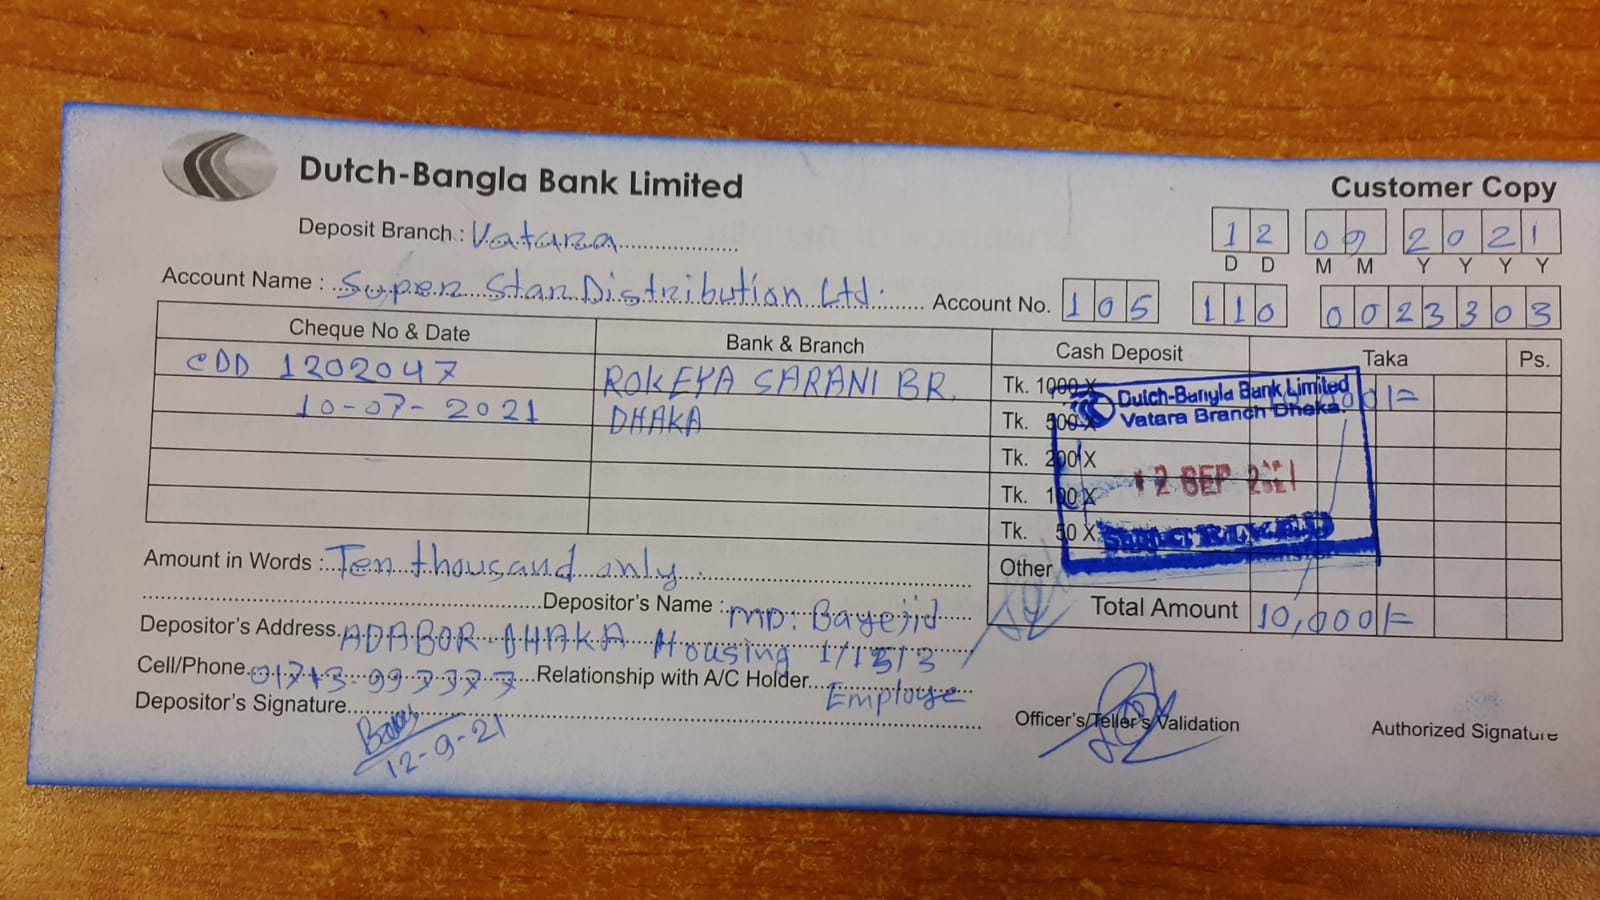 Dutch-Bangla Bank Limited
Customer Copy
Deposit Branch : Vatara
12 09 2021
D D M M Y Y Y Y
Account Name : Super Star Distribution Ltd. Account No. 105 110 0023303
Cheque No & Date Bank & Branch Cash Deposit Taka Ps.
CDD 1202047 ROKEYA SARANI BR. Tk. 1000 X
10-07-2021 DHAKA Tk. 500 X
Dutch-Bangla Bank Limited
Vatara Branch Dhaka.
Tk. 200 X
12 SEP 2021
Tk. 100 X
Tk. 50 X
Other
Amount in Words : Ten thousand only.
Total Amount 10,000/=
Depositor's Name : MD: Bayejid
Depositor's Address ADABOR DHAKA Housing 1/13/3
Cell/Phone Relationship with A/C Holder Employe
Depositor's Signature
12-9-21
Officer's/Teller's Validation
Authorized Signature